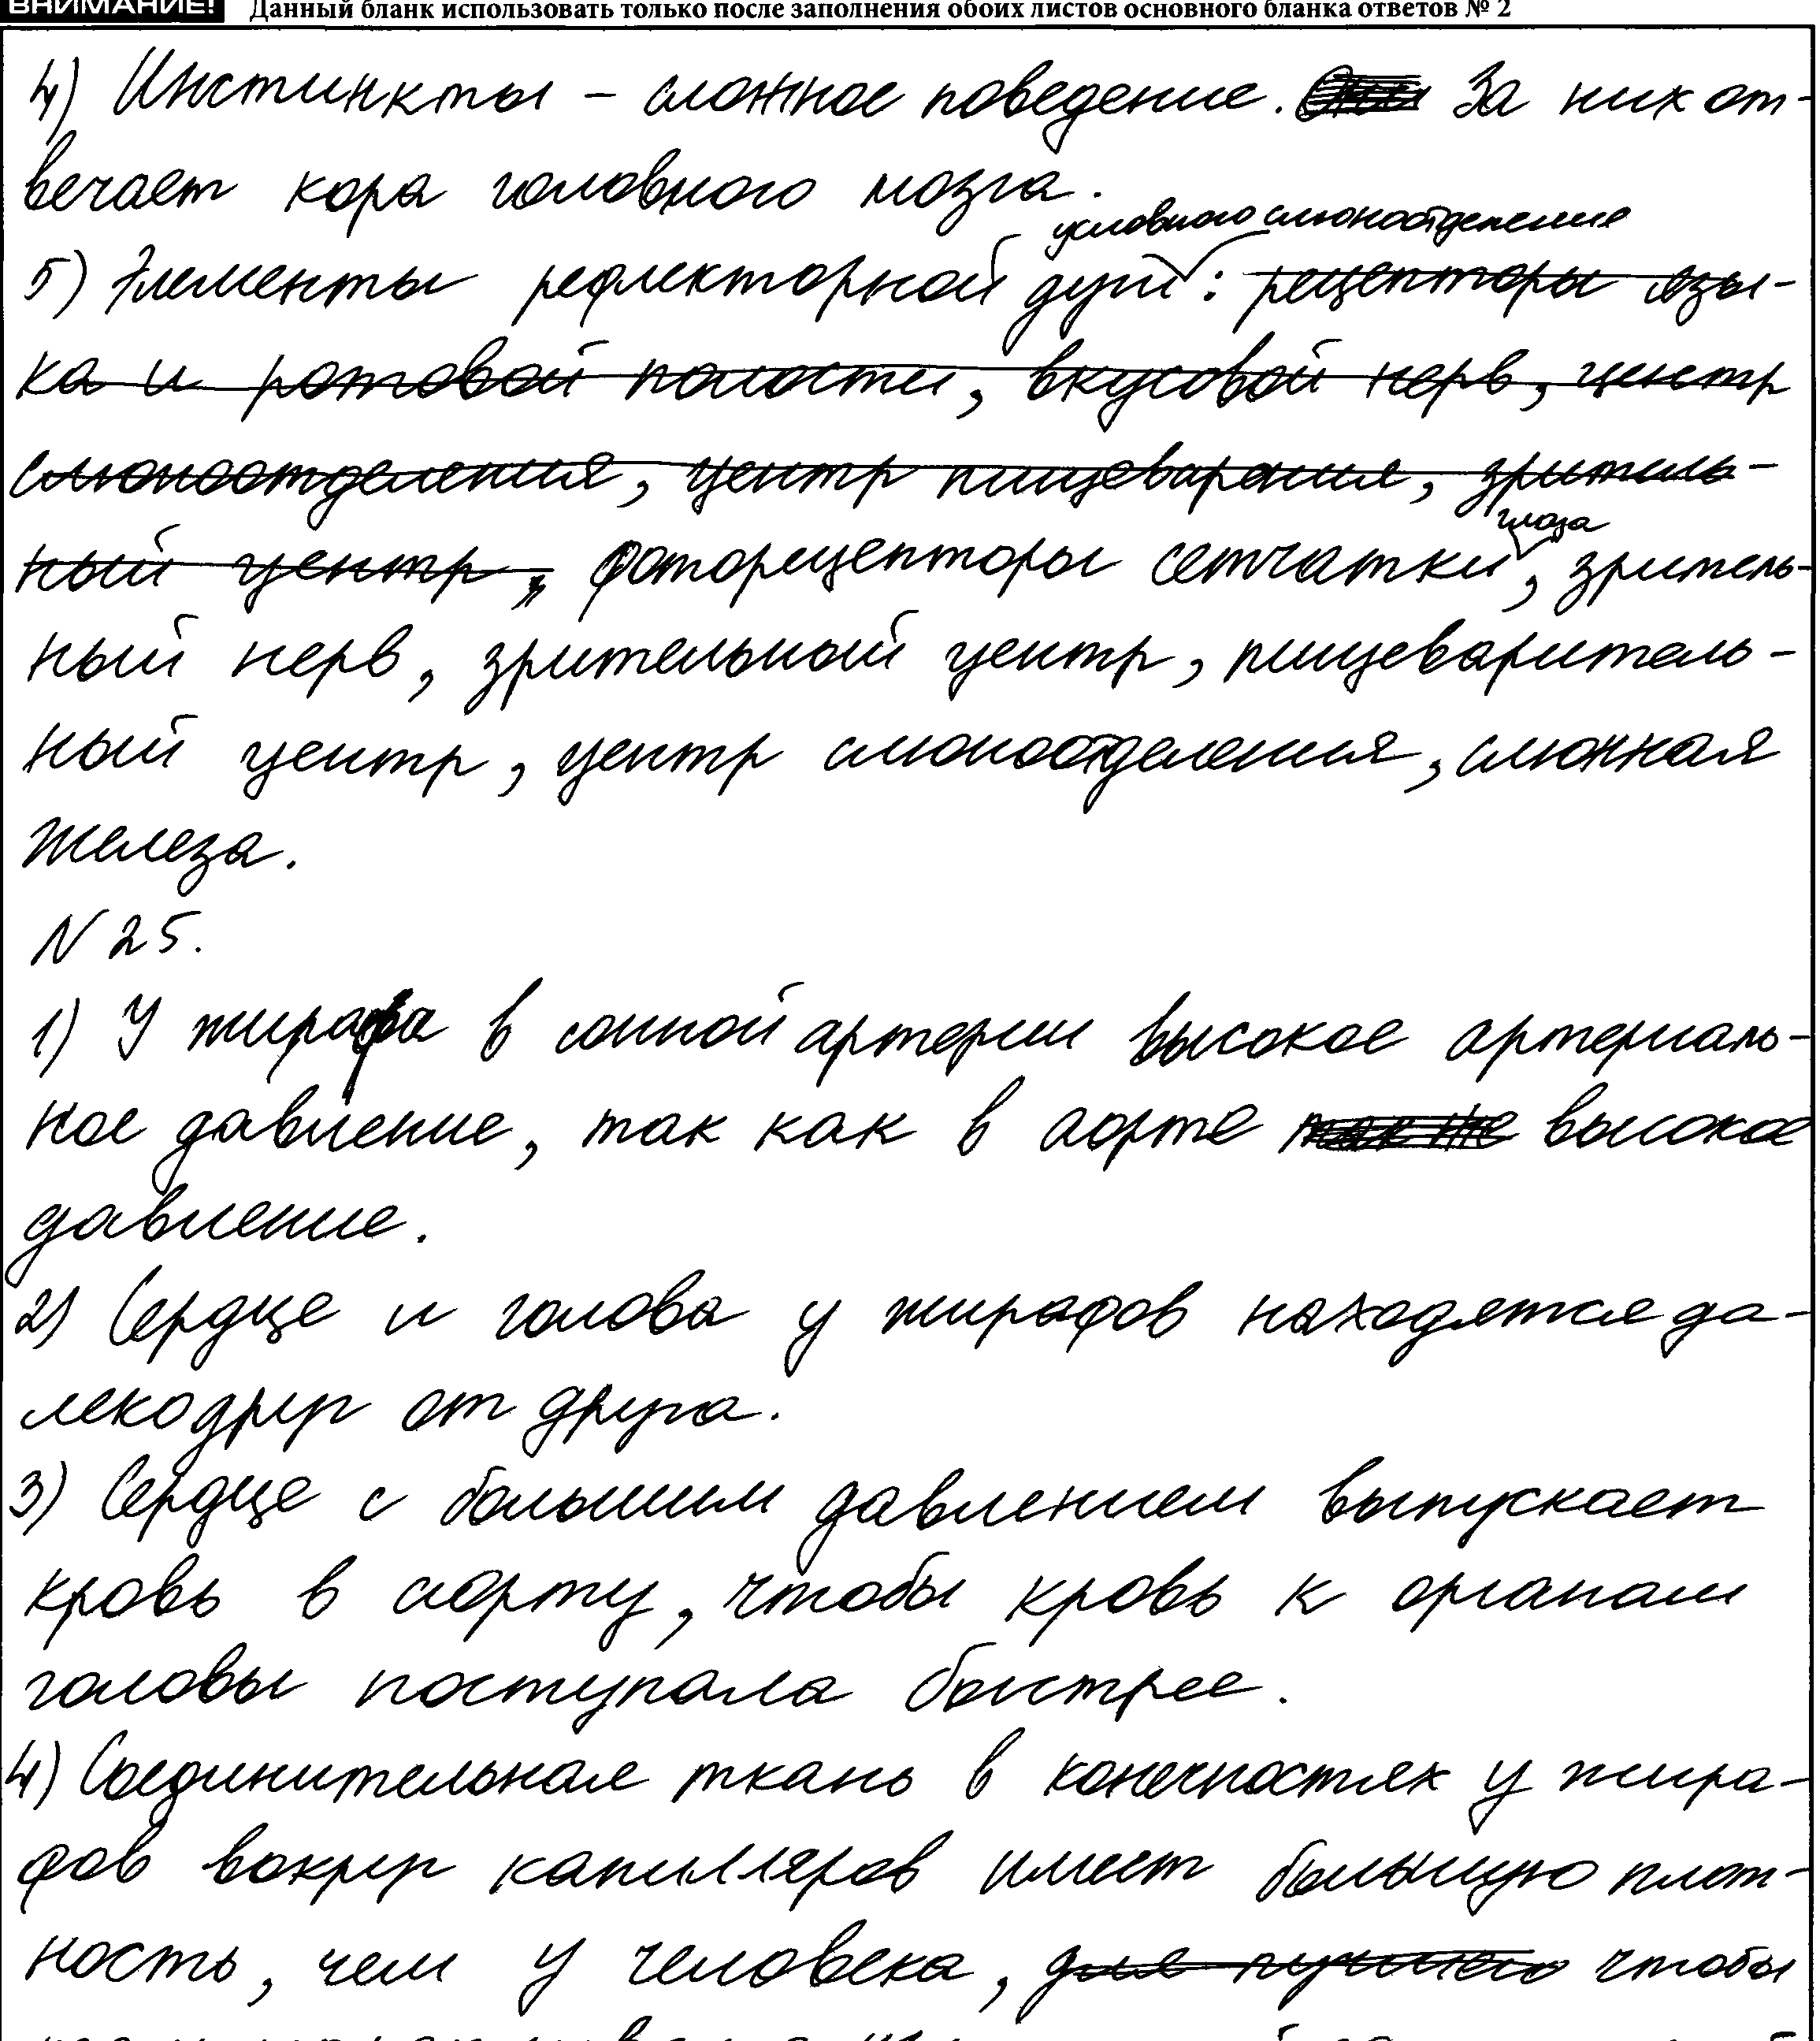 ВНИМАНИЕ! Данный бланк использовать только после заполнения обоих листов основного бланка ответов № 2
4) Инстинкты – сложное поведение. За них от-
вечает кора головного мозга.
условного слюноотделение
5) Элементы рефлекторной дуги: рецепторы язы-
ка и ротовой полости, вкусовой нерв, центр
слюноотделения, центр пищеварения, зритель-
глаза
ный центр, фоторецепторы сетчатки, зритель-
ный нерв, зрительный центр, пищеваритель-
ный центр, центр слюноотделения, слюнная
железа.
N 25.
1) У жирафа в сонной артерии высокое артериаль-
ное давление, так как в аорте так же высокое
давление.
2) Сердце и голова у жирафов находятся да-
леко друг от друга.
3) Сердце с большим давлением выпускает
кровь в аорту, чтобы кровь к органам
головы поступала быстрее.
4) Соединительная ткань в конечностях у жира-
фов вокруг капилляров имеет большую плот-
ность, чем у человека, для лучшего чтобы